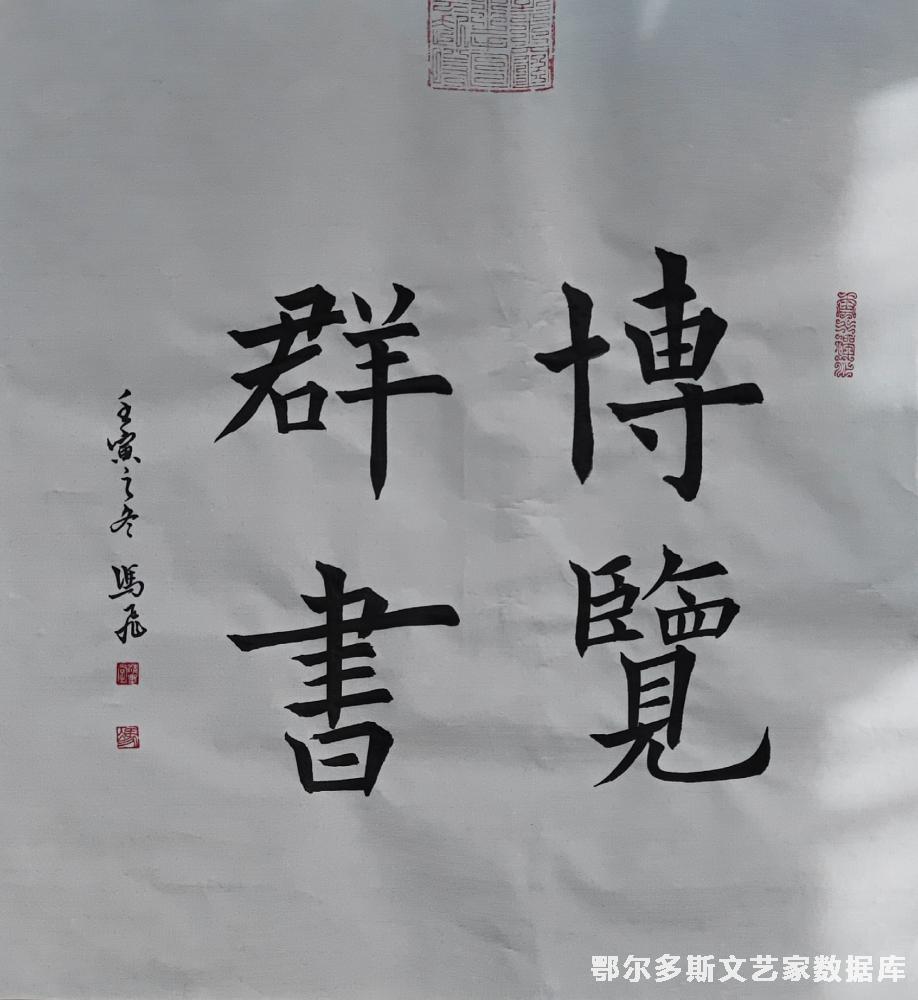 博覽
群書
壬寅之冬 馮飛
鄂尔多斯文艺家数据库